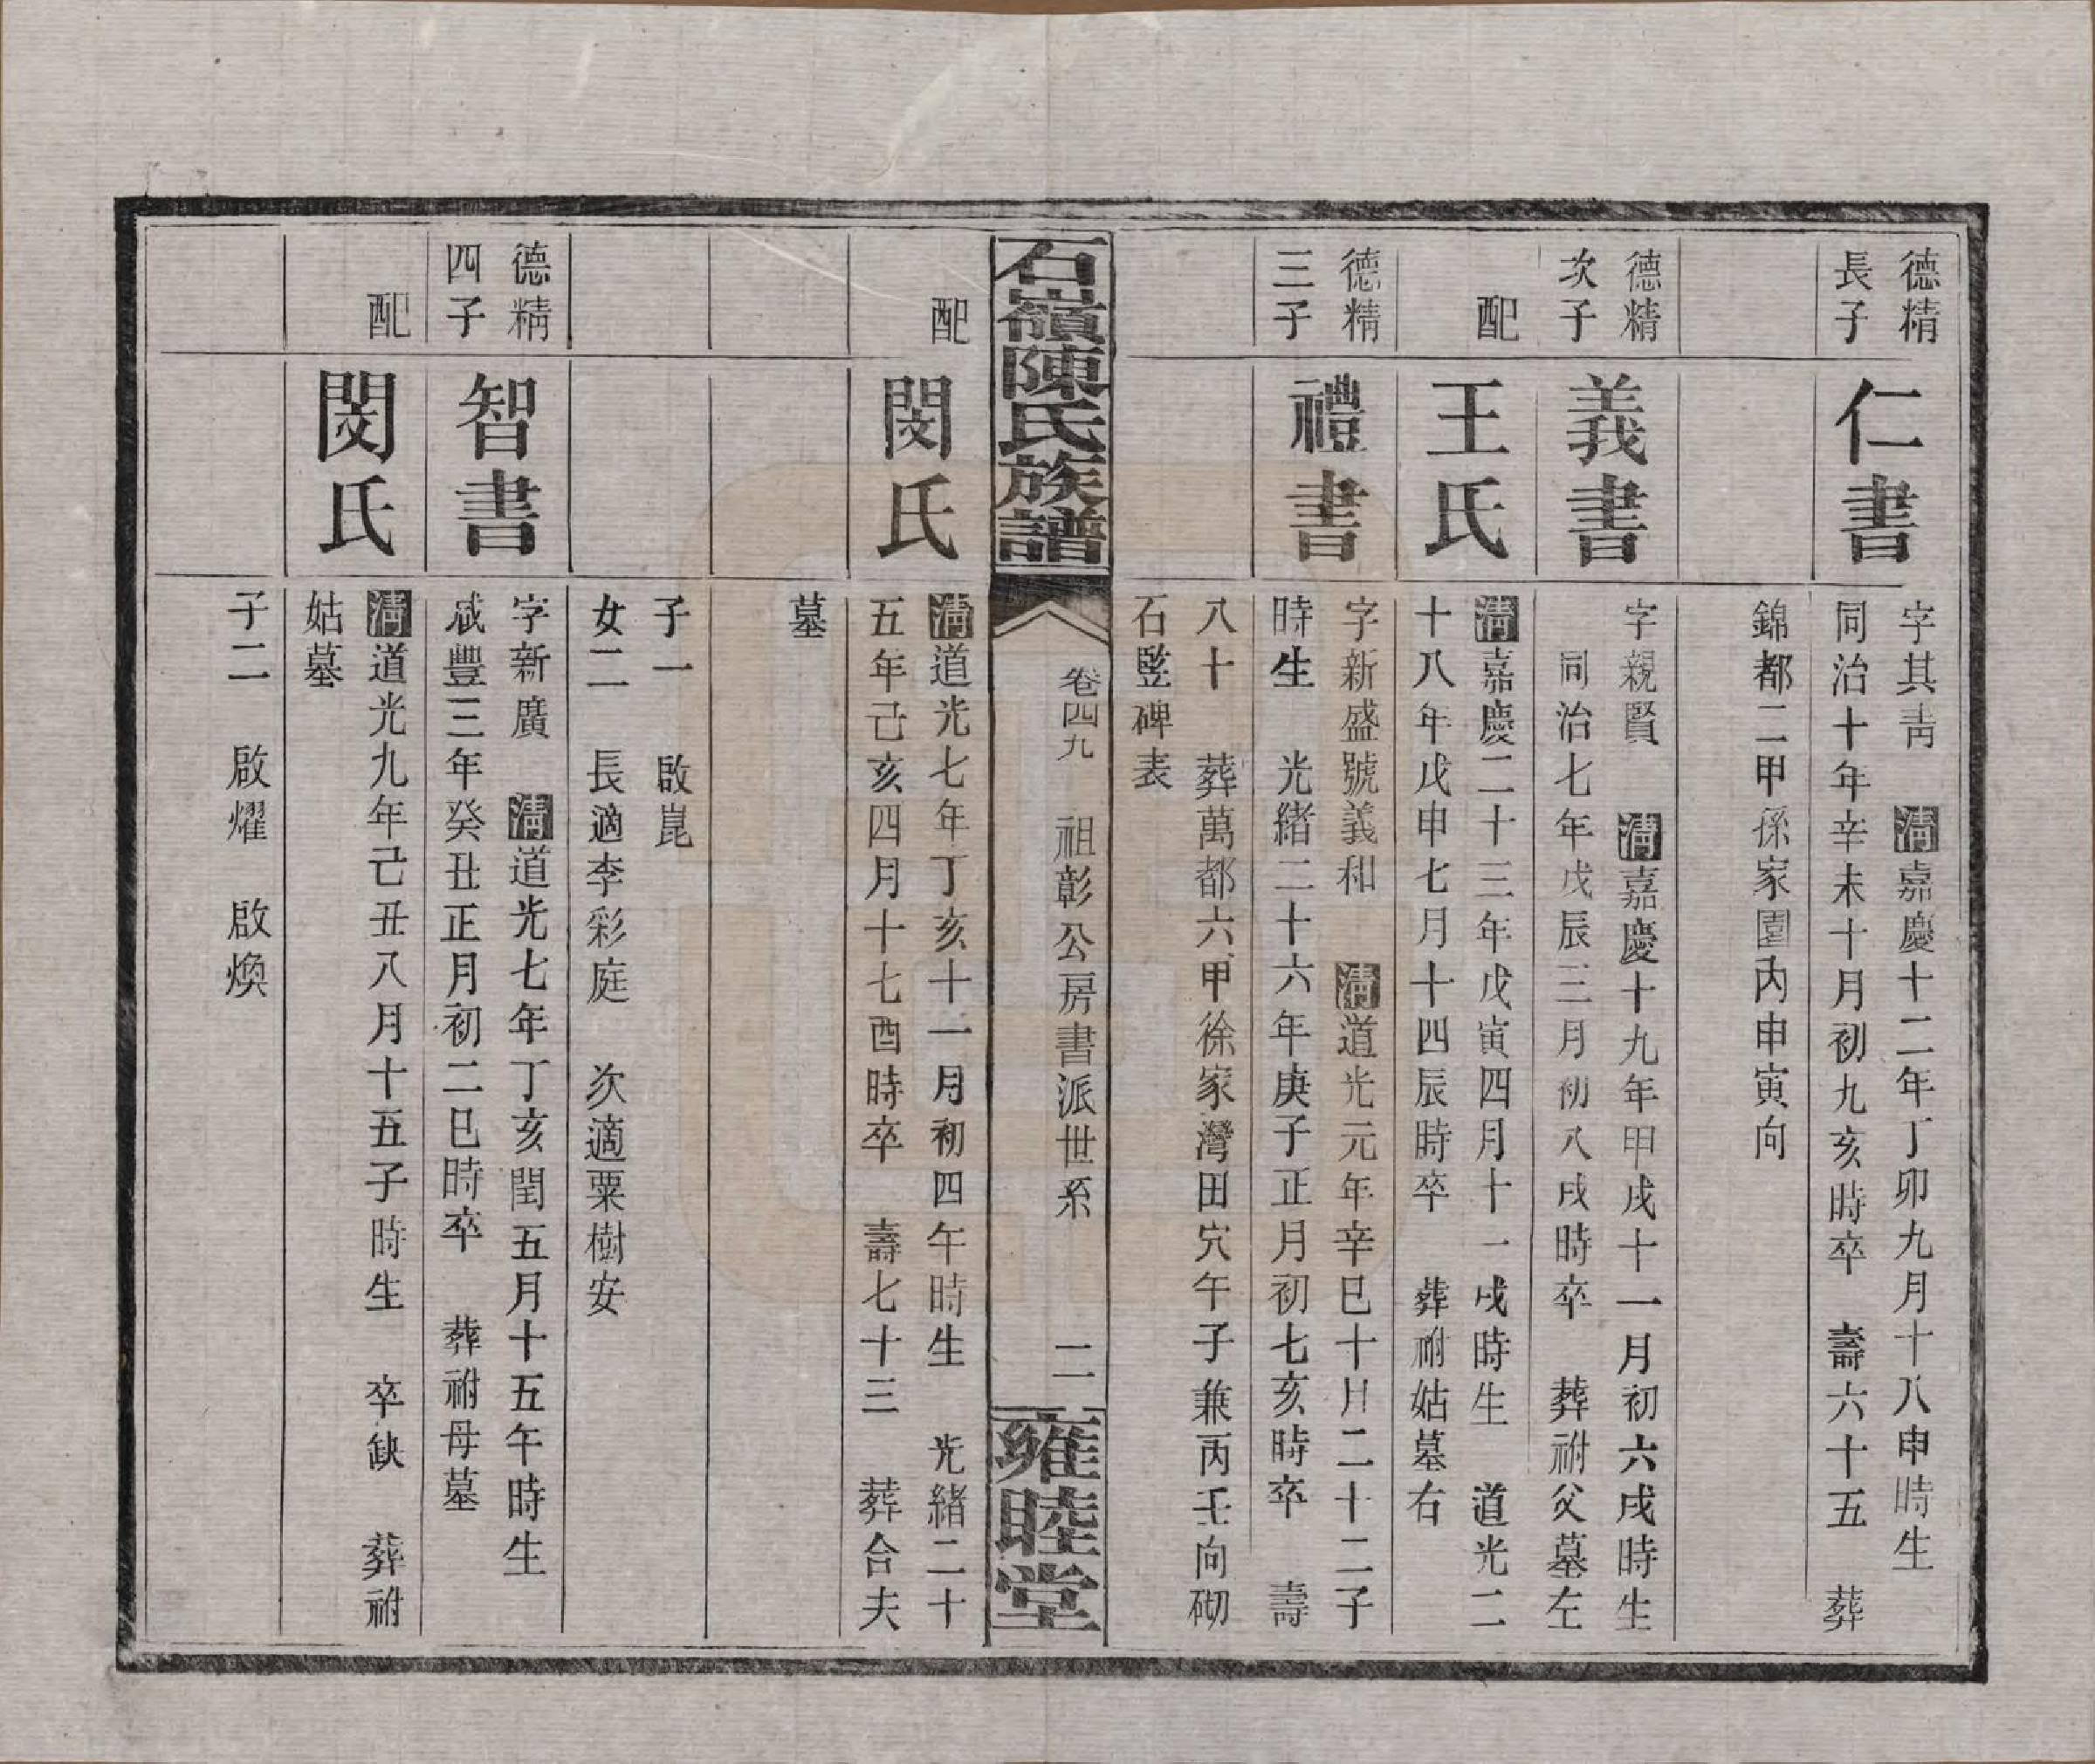 德精
長子
仁書
字其靑　淸嘉慶十二年丁卯九月十八申時生
同治十年辛未十月初九亥時卒　壽六十五　葬
錦都二甲孫家園內申寅向
德精
次子
義書
字親賢　淸嘉慶十九年甲戌十一月初六戌時生
同治七年戊辰三月初八戌時卒　葬祔父墓左
配
王氏
淸嘉慶二十三年戊寅四月十一戌時生　道光二
十八年戊申七月十四辰時卒　葬祔姑墓右
德精
三子
禮書
字新盛號義和　淸道光元年辛巳十月二十二子
時生　光緒二十六年庚子正月初七亥時卒　壽
八十　葬萬都六甲徐家灣田穴午子兼丙壬向砌
石竪碑表
石嶺陳氏族譜
卷四九　祖彰公房書派世系　二
雍睦堂
配
閔氏
淸道光七年丁亥十一月初四午時生　光緒二十
五年己亥四月十七酉時卒　壽七十三　葬合夫
墓
子一　啟崑
女二　長適李彩庭　次適粟樹安
德精
四子
智書
字新廣　淸道光七年丁亥閏五月十五午時生
咸豐三年癸丑正月初二巳時卒　葬祔母墓
配
閔氏
淸道光九年己丑八月十五子時生　卒缺　葬祔
姑墓
子二　啟燿　啟煥